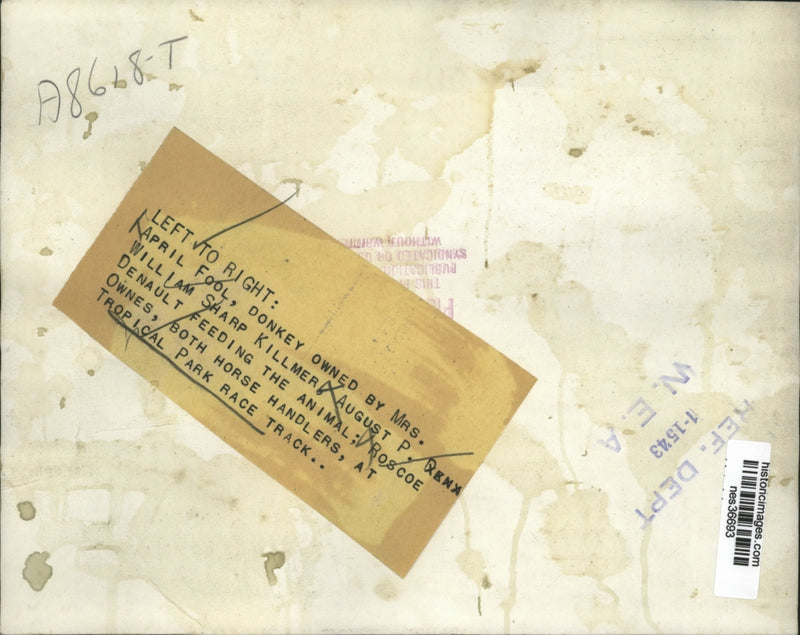 A8618-T
LEFT TO RIGHT:
APRIL FOOL, DONKEY OWNED BY MRS.
WILLIAM SHARP KILLMER, AUGUST P.
DENAULT FEEDING THE ANIMAL; ROSCOE
OWNES, BOTH HORSE HANDLERS, AT
TROPICAL PARK RACE TRACK..
THIS
PUBLICATION
SYNDICATED OR
WITHOUT
REF. DEPT
1-1543
W. E. A
historicimages.com
nes36693